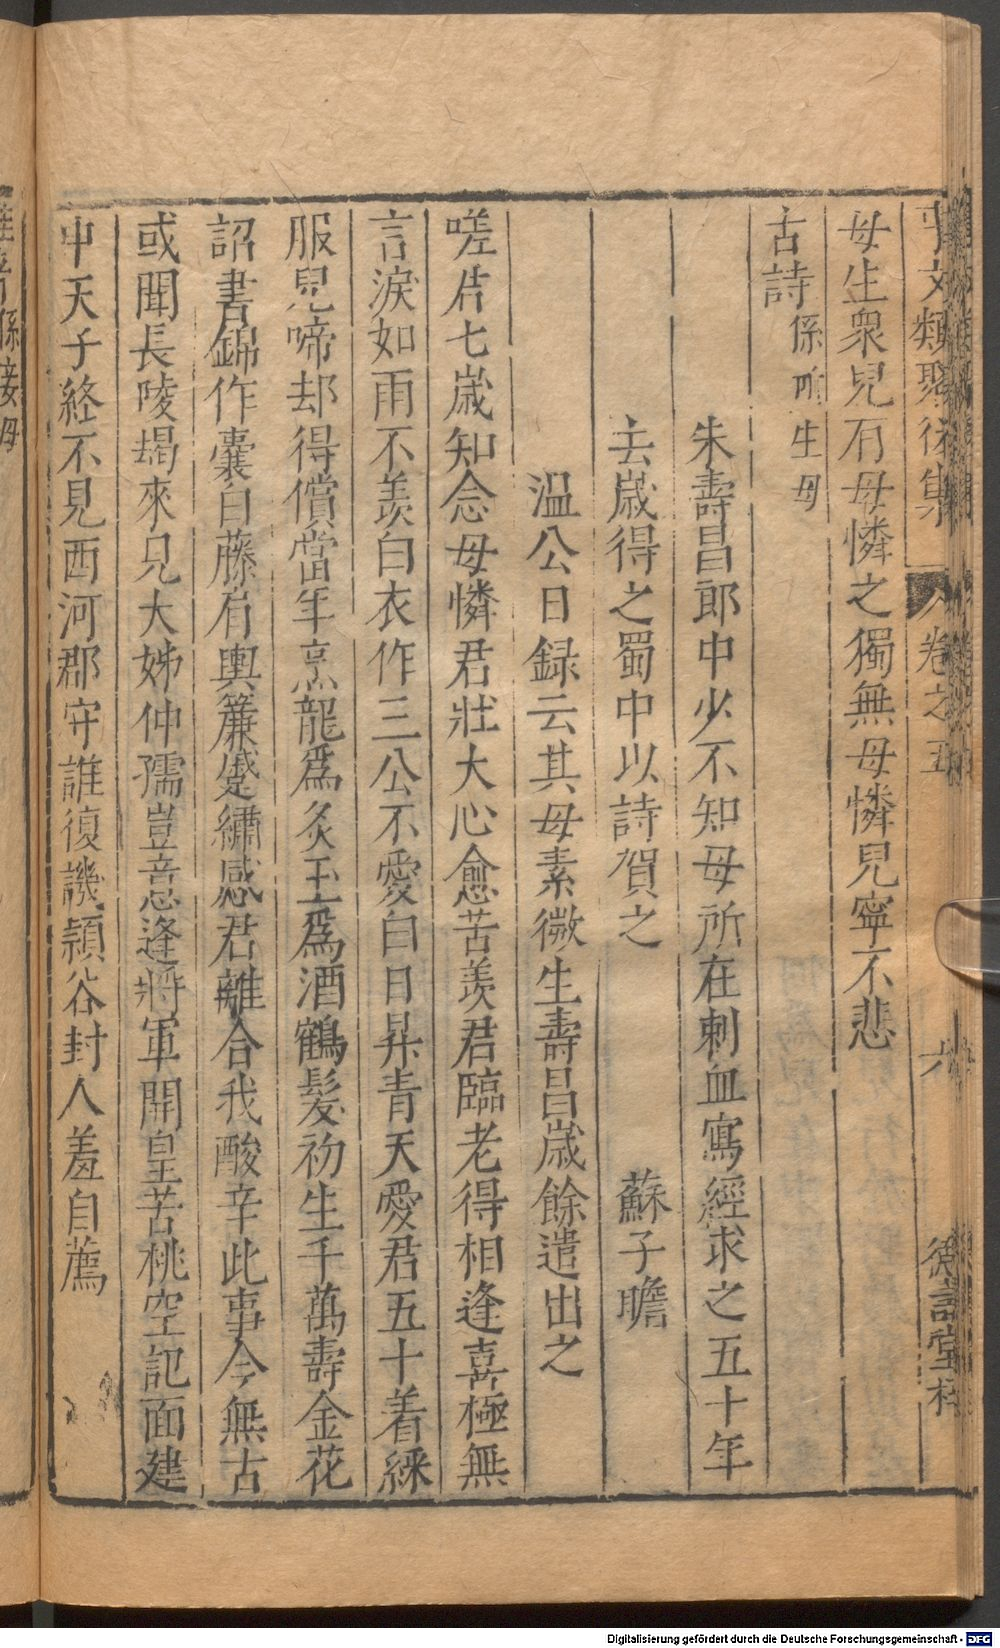 事文類聚後集 卷之五 六 德詩堂梓
母生衆兒有母憐之獨無母憐兒寧不悲
古詩 係所生母
朱壽昌郎中少不知母所在刺血寫經求之五十年
去歲得之蜀中以詩賀之 蘇子瞻
溫公日録云其母素微生壽昌歲餘遣出之
嗟君七歲知念母憐君壯大心愈苦羨君臨老得相逢喜極無
言淚如雨不羨白衣作三公不愛白日昇青天愛君五十着綵
服兒啼却得償當年烹龍爲炙玉爲酒鶴髮初生千萬壽金花
詔書錦作囊白藤肩輿簾蹙繡感君離合我酸辛此事今無古
或聞長陵朅來見大姊仲孺豈意逢將軍開皇苦桃空記面建
中天子終不見西河郡守誰復譏潁谷封人羞自薦
係妾母
Digitalisierung gefördert durch die Deutsche Forschungsgemeinschaft - DFG